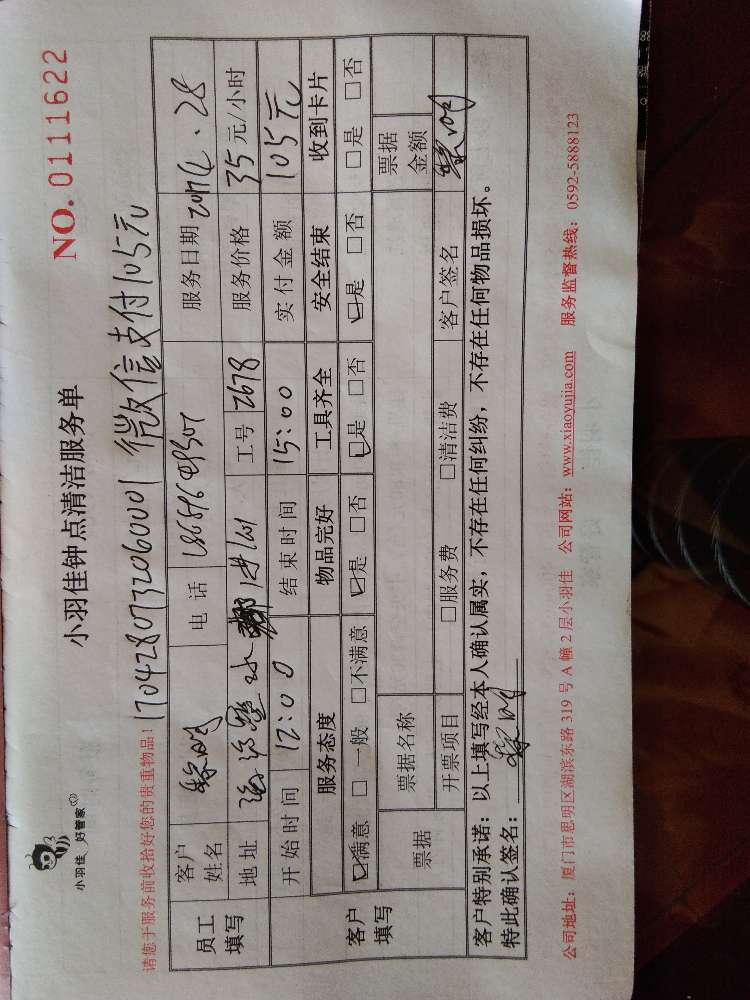 小羽佳 好管家
小羽佳钟点清洁服务单
NO. 0111622
请您于服务前收拾好您的贵重物品!
170428073206001 微信支付105元
员工填写
客户姓名
电话
服务日期 2017.4.28
地址
工号 2678
服务价格 35元/小时
客户填写
开始时间 12:00
结束时间 15:00
实付金额 105元
服务态度 物品完好 工具齐全 安全结束 收到卡片
☑满意 □一般 □不满意 ☑是 □否 ☑是 □否 ☑是 □否 □是 □否
票据
票据名称
票据金额
开票项目 □服务费 □清洁费
客户签名
客户特别承诺:以上填写经本人确认属实,不存在任何纠纷,不存在任何物品损坏。
特此确认签名:
公司地址:厦门市思明区湖滨东路 319 号 A 幢 2 层小羽佳 公司网站:www.xiaoyujia.com 服务监督热线:0592-5888123